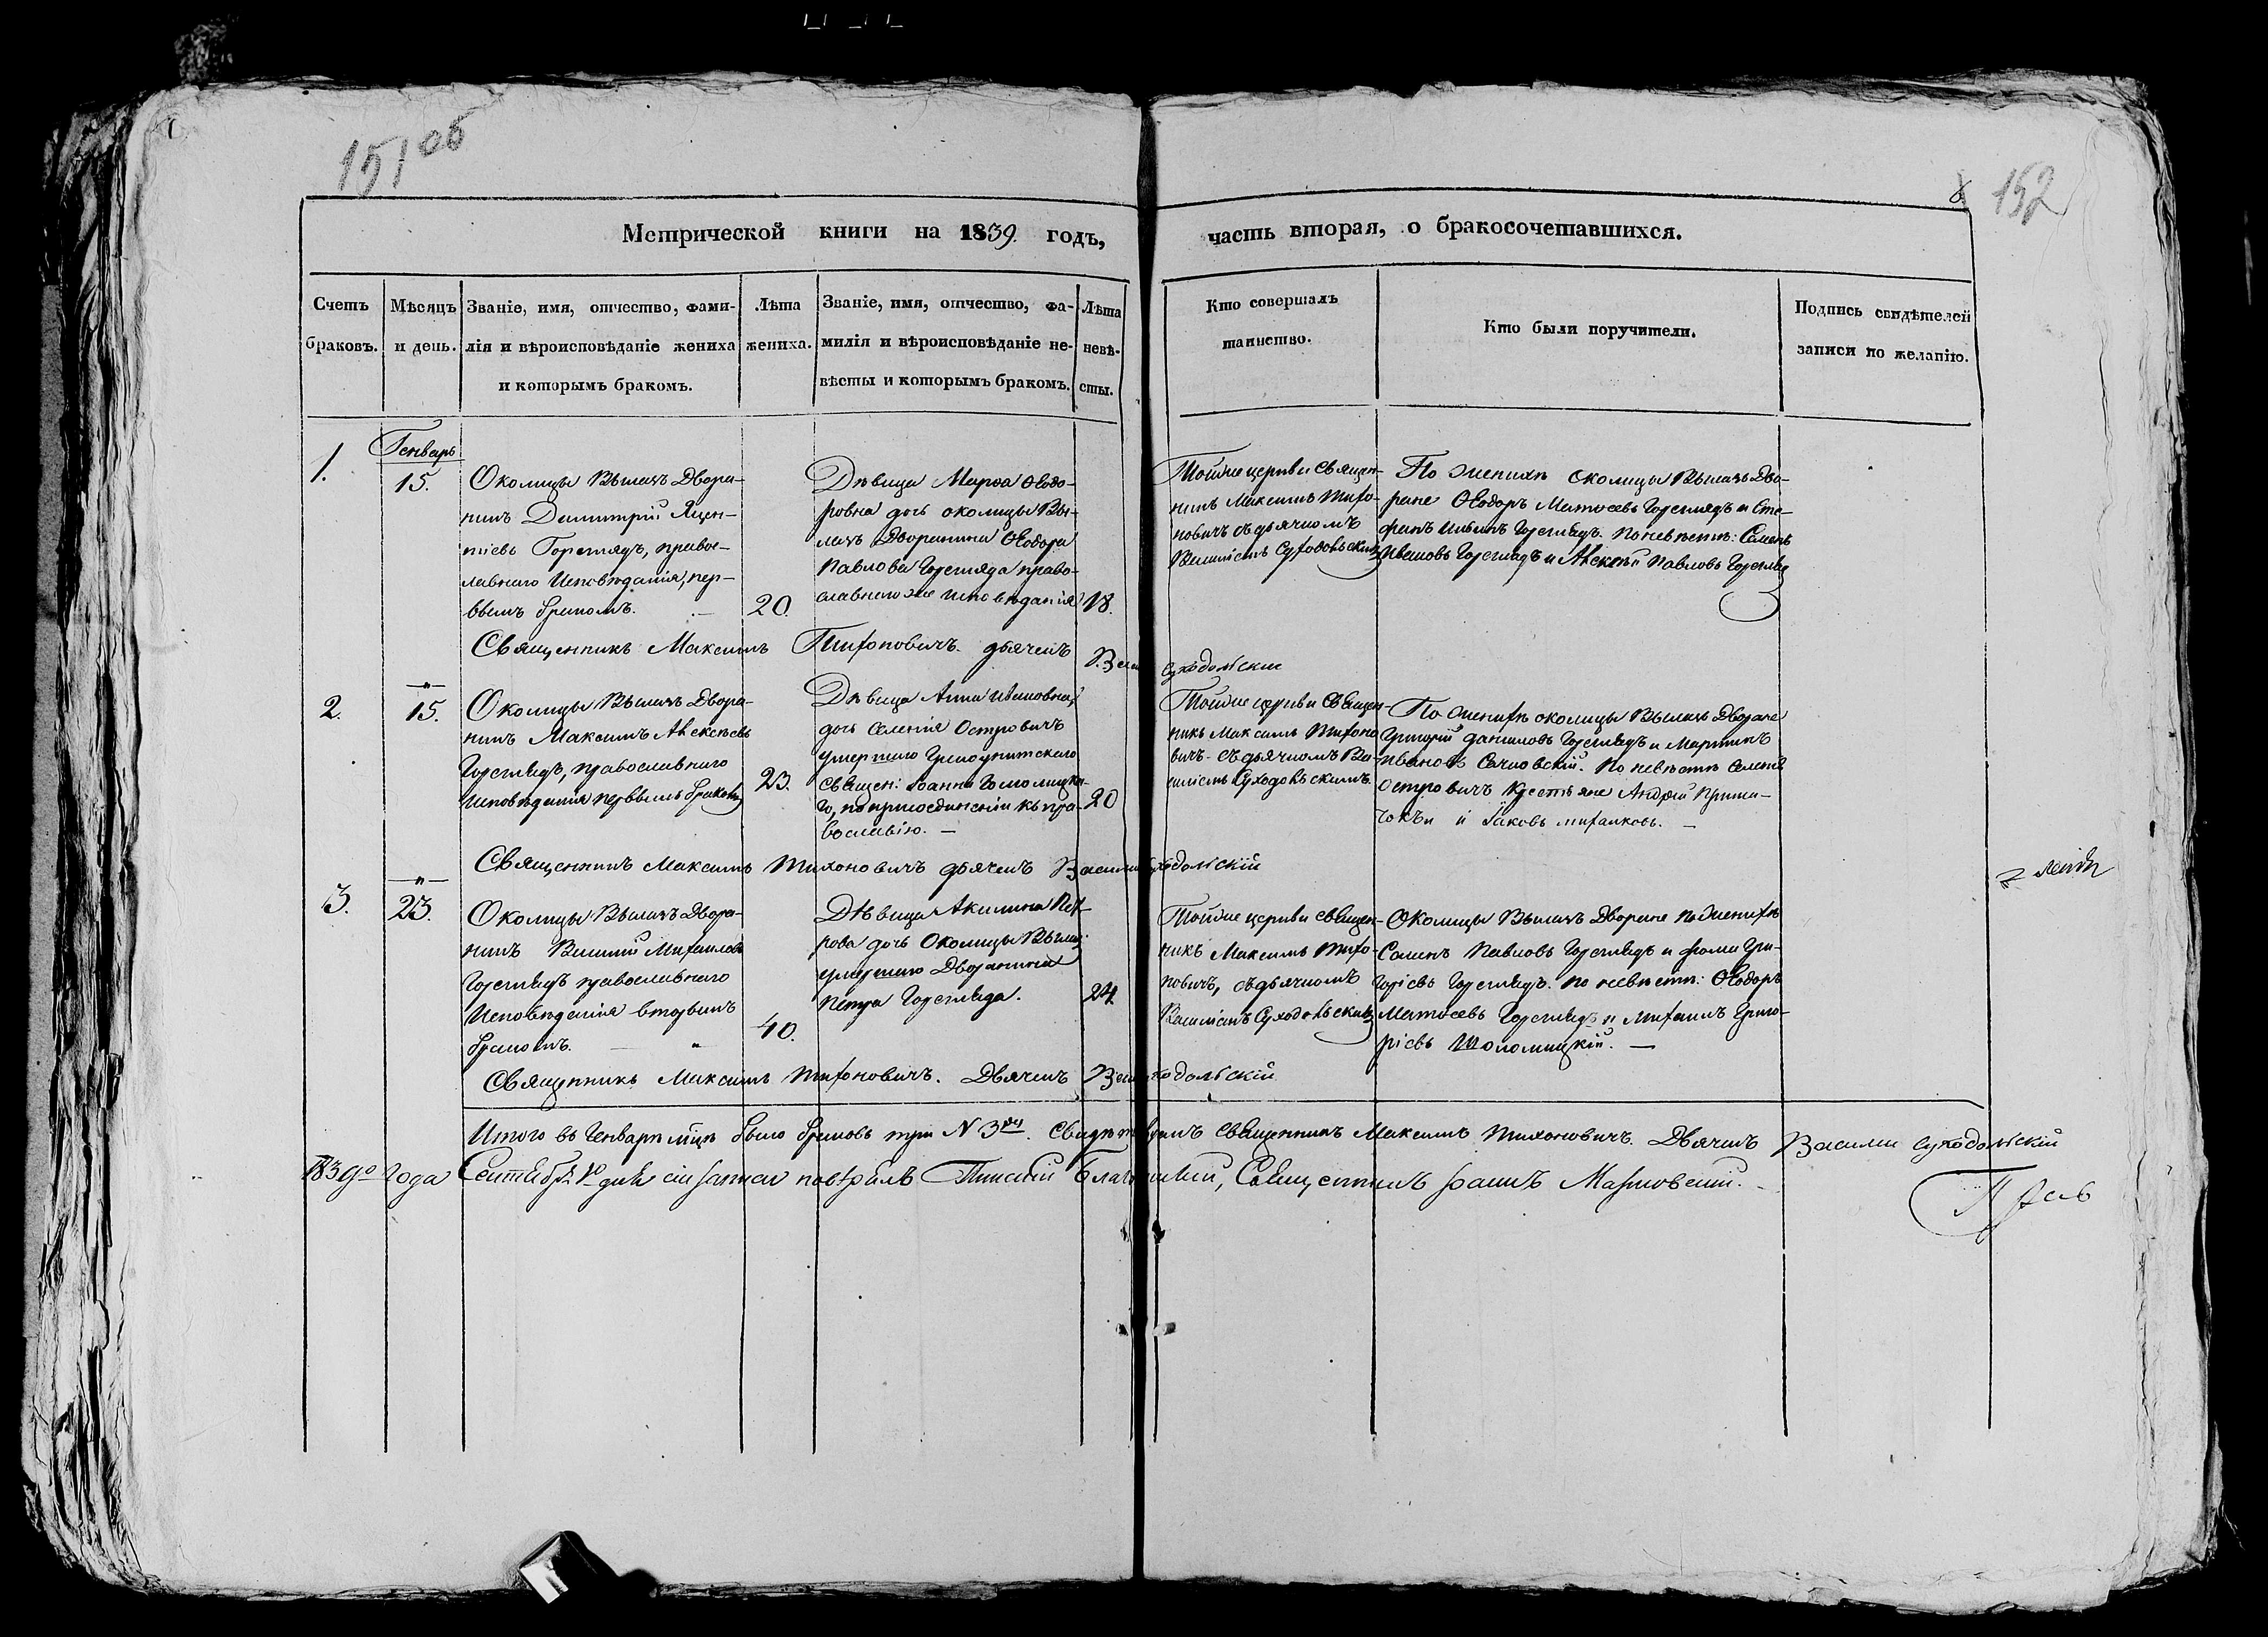 151 об
8 152
Метрической книги на 1839. годъ,
часть вторая, о бракосочетавшихся.
Счетъ
браковъ.
Мѣсяцъ
и день.
Званіе, имя, отчество, фами-
лія и вѣроисповѣданіе жениха
и которымъ бракомъ.
Лѣта
жениха.
Званіе, имя, отчество, фа-
милія и вѣроисповѣданіе не-
вѣсты и которымъ бракомъ.
Лѣта
невѣ-
сты.
Кто совершалъ
таинство.
Кто были поручители.
Подпись свидѣтелей
записи по желанію.
1.
Генварь
15.
Околицы Вылазъ Двора-
нинъ Димитрій
Горегляд, право-
славнаго Исповѣданія, пер-
вымъ бракомъ.
20.
Дѣвица Марѳа Ѳедо-
ровна дочь околицы Вы-
лазъ Дворянина Ѳеодора
Павлова Горегляда право-
славнагоже исповѣданія
18.
Тойже церкви Священ-
никъ Максимъ Тихо-
новичъ съ дьячкомъ
Василіемъ Суходольскимъ
По женихѣ околицы Вылазъ Дво-
ране Ѳеодоръ Матѳеевъ Гореглядъ и Сте-
фанъ Ильинъ Гореглядъ. По невѣстѣ: Семенъ
Ивановъ Гореглядъ и Алексѣй Павловъ Гореглядъ
Священникъ Максимъ Тихоновичъ. дьячекъ
Суходольскій
2.
15.
Околицы Вылазъ Двора-
нинъ Максимъ Алексѣевъ
Гореглядъ, православнаго
Исповѣданія первымъ бракомъ
23.
Дѣвица Анна Ивановна,
дочь селенія Островичъ
умершаго Грекоунитскаго
Священ: Іоанна
го, по присоединеніи къ пра-
вославію. —
20
Тойже церкви Священ-
никъ Максимъ Тихоно
вичъ. съ дьячкомъ Ва-
силіемъ Суходольскимъ.
По женихѣ околицы Вылазъ Дворане
Григорій Даниловъ Гореглядъ и Мартинъ
Ивановъ По невѣстѣ селенія
Островичъ Крестьяне Андрей
и Іаковъ —
Священникъ Максимъ Тихоновичъ дьячекъ Василій Суходольскій
3.
23.
Околицы Вылазъ Двора-
нинъ Василій Михаиловъ
Гореглядъ православнаго
Исповѣданія вторымъ
бракомъ.
40.
Дѣвица Акилина Пет-
рова дочь Околицы Вылаз:
умершаго Дворанина
Петра Горегляда.
24
Тойже церкви Священ-
никъ Максимъ Тихо-
новичъ, съ дьячкомъ
Василіемъ Суходольскимъ
Околицы Вылазъ Дворане по женихѣ
Семенъ Павловъ Гореглядъ и Ѳома Гри-
горіевъ Гореглядъ. по невѣстѣ: Ѳеодоръ
Матѳеевъ Гореглядъ и Михаилъ Григо-
ріевъ Шоломицкій. —
Священникъ Максимъ Тихоновичъ. Дьячекъ Суходольскій
Итого въ Генварѣ мцѣ было браковъ три N 3. Священникъ Максимъ Тихоновичъ. Дьячекъ Василій Суходольскій
1839го года Сентября дня сіи записи повѣрялъ Пинскій Благочинный, Священникъ